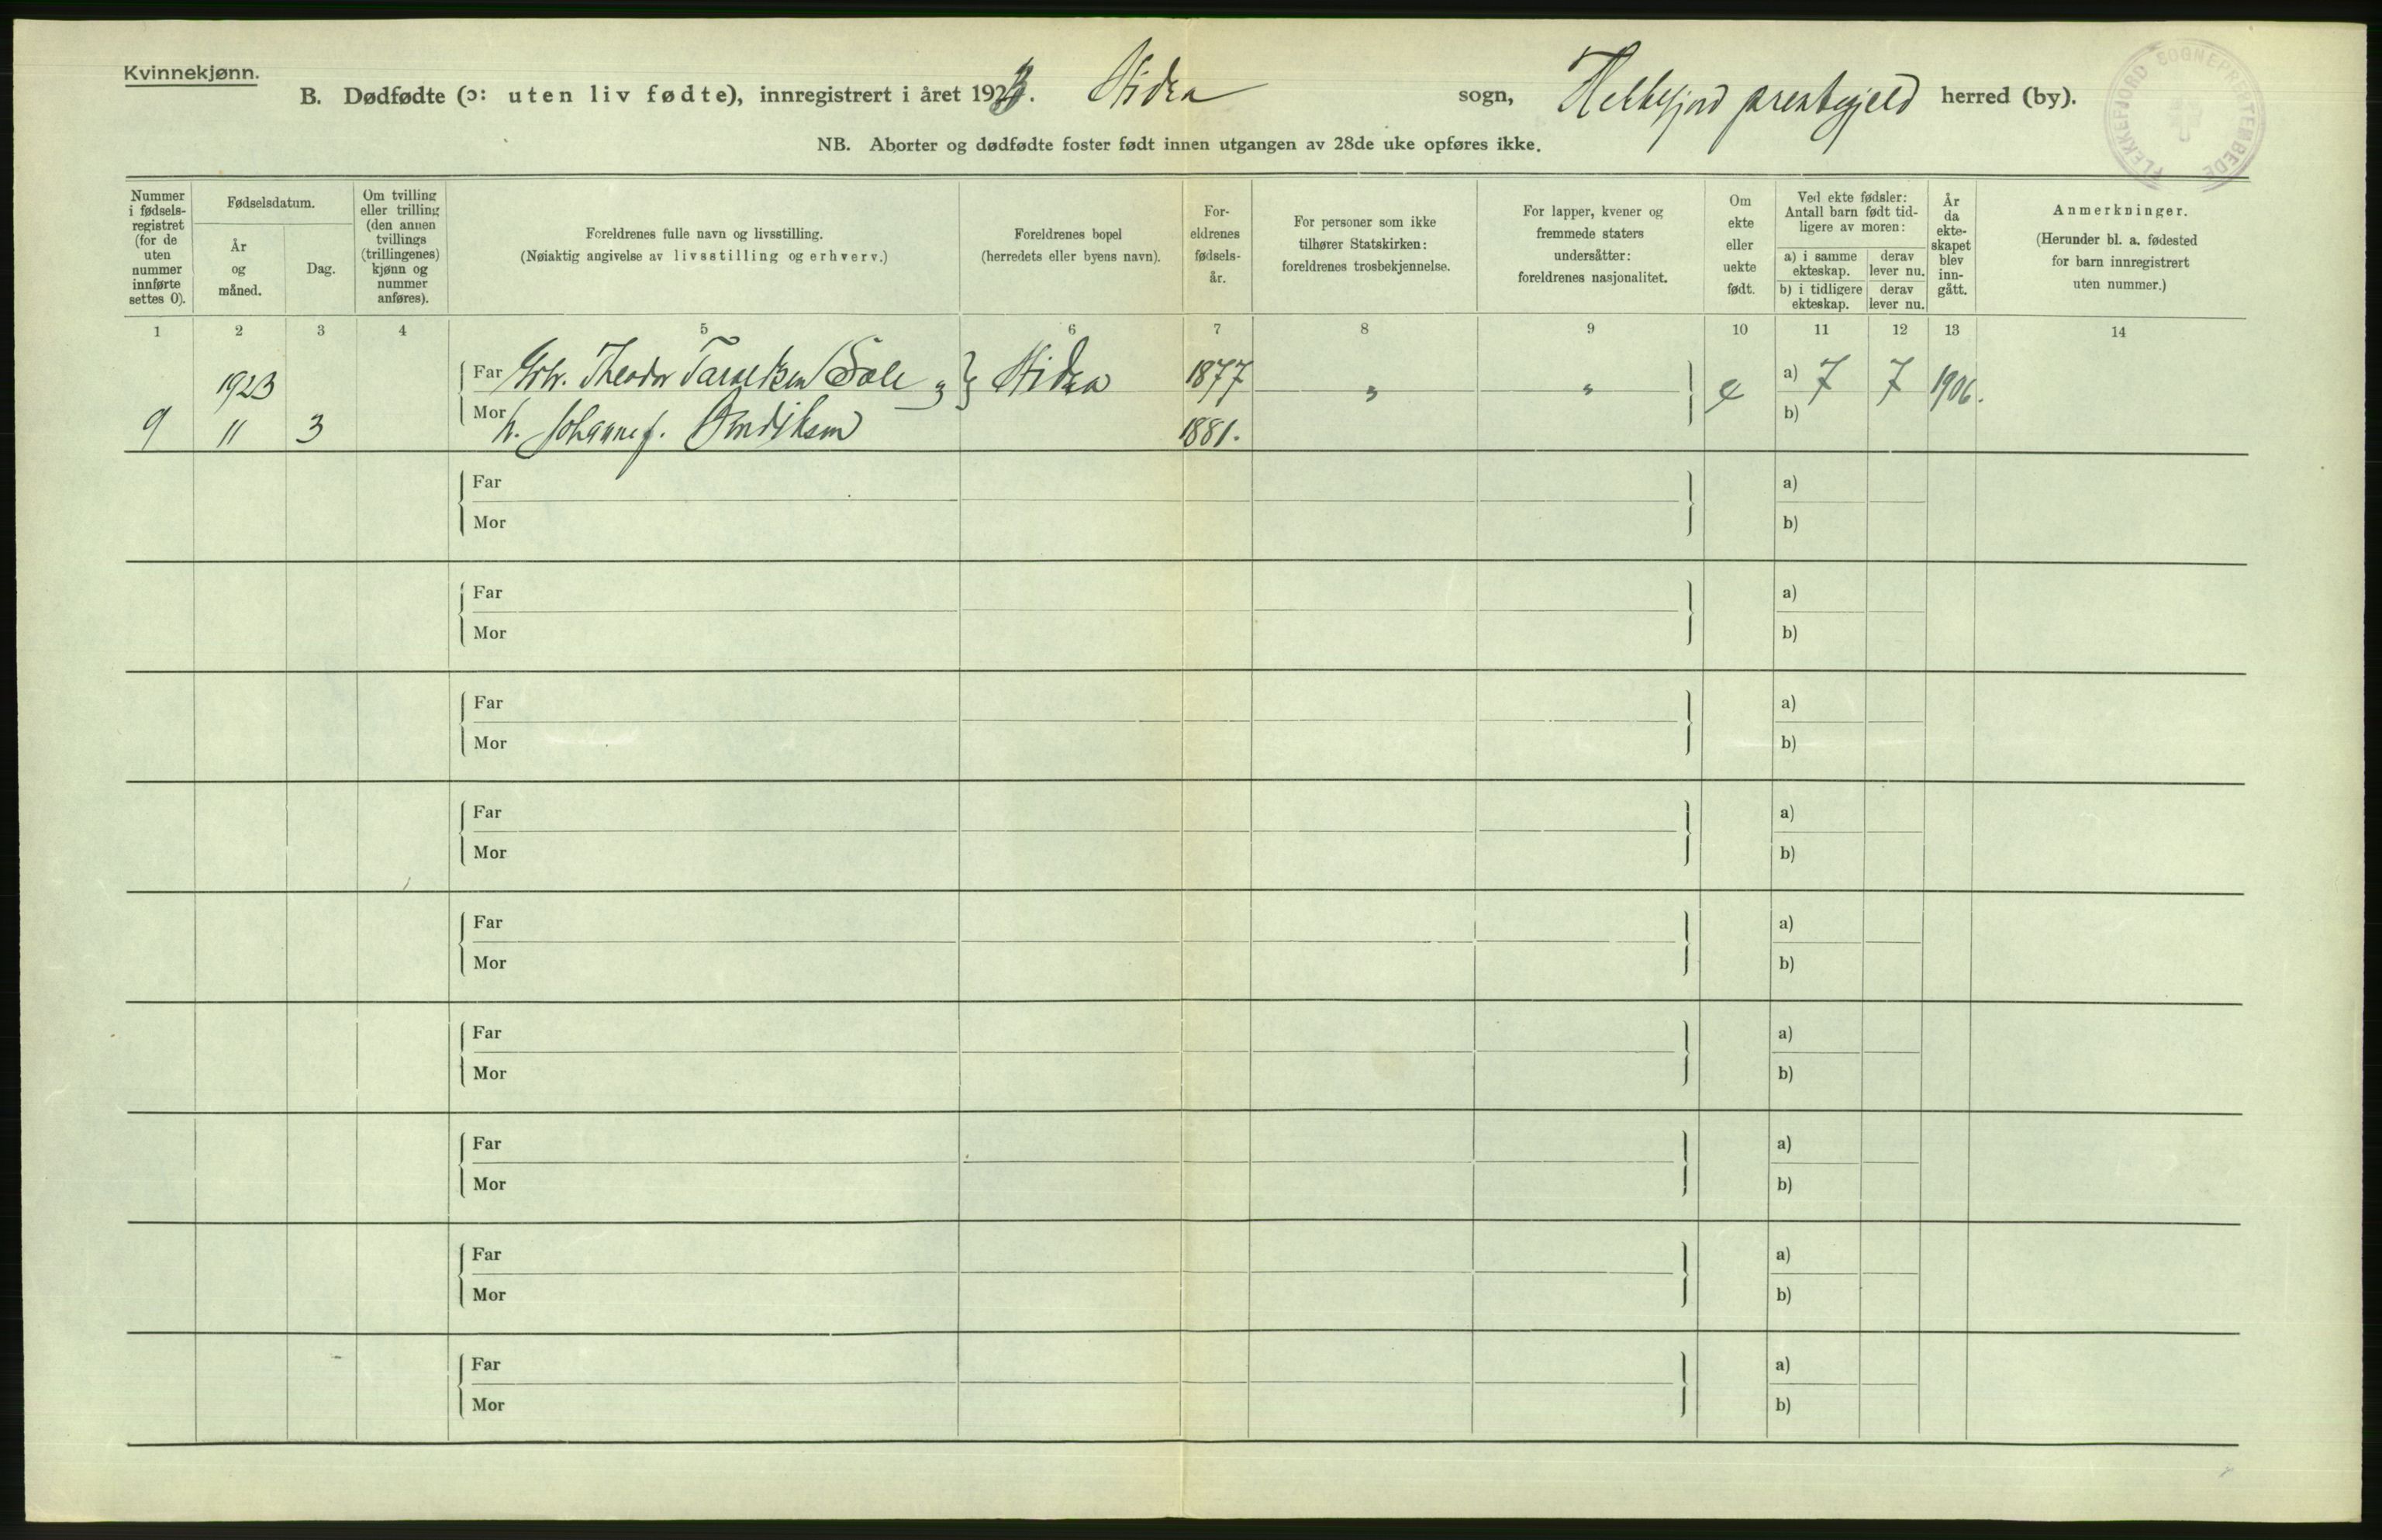 Kvinnekjønn.
B. Dødfødte (ɔ: uten liv fødte), innregistrert i året 1923. Hidra sogn, Flekkefjord prestegjeld herred (by).
FLEKKEFJORD SOGNEPRESTEMBEDE
NB. Aborter og dødfødte foster født innen utgangen av 28de uke opføres ikke.
Nummer i fødsels-registret (for de uten nummer innførte settes 0).
Fødselsdatum.
År og måned.
Dag.
Om tvilling eller trilling (den annen tvillings (trillingenes) kjønn og nummer anføres).
Foreldrenes fulle navn og livsstilling.
(Nøiaktig angivelse av livsstilling og erhverv.)
Foreldrenes bopel
(herredets eller byens navn).
For-eldrenes fødsels-år.
For personer som ikke tilhører Statskirken: foreldrenes trosbekjennelse.
For lapper, kvener og fremmede staters undersåtter: foreldrenes nasjonalitet.
Om ekte eller uekte født.
Ved ekte fødsler: Antall barn født tid-ligere av moren:
a) i samme ekteskap.
derav lever nu.
b) i tidligere ekteskap.
derav lever nu.
År da ekte-skapet blev inn-gått.
Anmerkninger.
(Herunder bl. a. fødested for barn innregistrert uten nummer.)
1 2 3 4 5 6 7 8 9 10 11 12 13 14
1923 Far Theodor Sæle Hidra 1877 " " e a) 7 7 1906.
9 11 3 Mor h. Johanne f. 1881. b)
Far a)
Mor b)
Far a)
Mor b)
Far a)
Mor b)
Far a)
Mor b)
Far a)
Mor b)
Far a)
Mor b)
Far a)
Mor b)
Far a)
Mor b)
Far a)
Mor b)